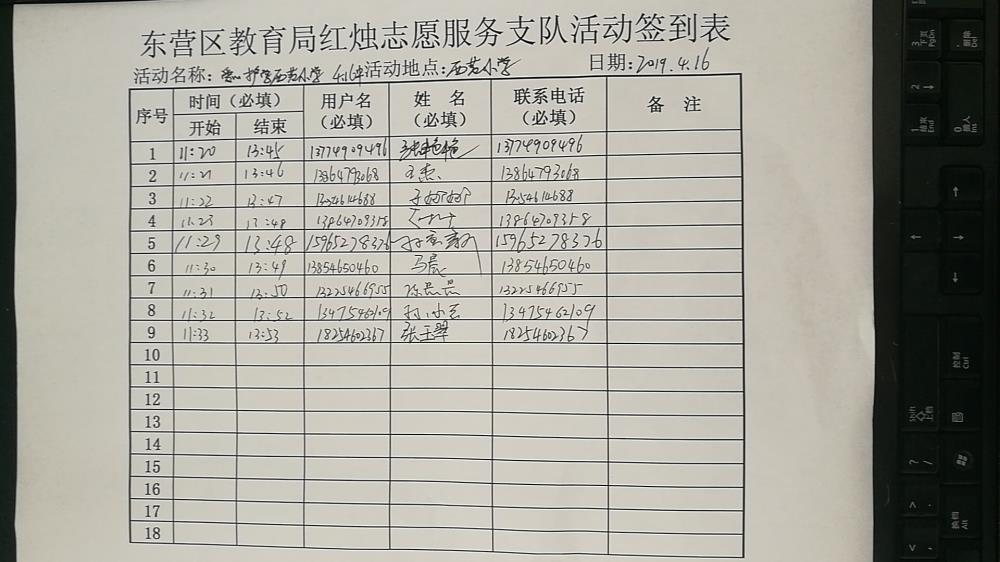 东营区教育局红烛志愿服务支队活动签到表
活动名称: 爱心护学西苑小学 4.16 活动地点: 西苑小学 日期: 2019.4.16
序号 时间（必填） 用户名（必填） 姓 名（必填） 联系电话（必填） 备 注
开始 结束
1 11:20 13:45 13774909496 13774909496
2 11:21 13:46 13864793068 王杰 13864793068
3 11:22 13:47 13254614688 13254614688
4 11:23 13:48 13864709358 13864709358
5 11:29 13:48 15965278376 15965278376
6 11:30 13:49 13854650460 马晨 13854650460
7 11:31 13:50 13225466955 陈晶晶 13225466955
8 11:32 13:52 13475462109 13475462109
9 11:33 13:53 18254602367 张玉翠 18254602367
10
11
12
13
14
15
16
17
18
下页 PgDn
删除 Del
结束 End
插入 Ins
控制 Ctrl
Shift 上档
换档 Alt